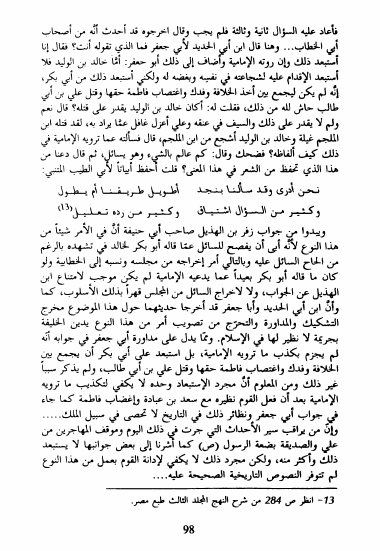 فأعاد عليه السؤال ثانية وثالثة فلم يجب وقال اخرجوه قد أحدث أنّه من أصحاب
أبي الخطاب... وهنا قال ابن أبي الحديد لأبي جعفر فما الذي تقوله أنت؟ فقال إنا
أستبعد ذلك وإن روته الإمامية وأضاف إلى ذلك أبو جعفر: أمّا خالد بن الوليد فلا
أستبعد الإقدام عليه لشجاعته في نفسه وبغضه له ولكني أستبعد ذلك من أبي بكر،
إنّه لم يكن ليجمع بين أخذ الخلافة وفدك واغتصاب فاطمة حقها وقتل علي بن أبي
طالب حاش لله من ذلك، فقلت له: أكان خالد بن الوليد يقدر على قتله؟ قال نعم
ولم لا يقدر على ذلك والسيف في عنقه وعلي أعزل غافل عمّا يراد به، لقد قتله ابن
الملجم غيلة وخالد بن الوليد أشجع من ابن الملجم، قال فسألته عما ترويه الإمامية في
ذلك كيف ألفاظه؟ فضحك وقال: كم عالم بالشيء وهو يسائل، ثم قال دعنا من
هذا الذي تحفظ من الشعر في هذا المعنى؟ قلت أحفظ أبياتاً لأبي الطيب المتنبي:
نحن أدرى وقد سألنا بنجد أطويل طريقنا أم يطول
وكثير من السؤال اشتياق وكثير من رده تعليل(13)
ويبدوا من جواب زفر بن الهذيل صاحب أبي حنيفة أنّ في الأمر شيئاً من
هذا النوع لأنّه أبى أن يفصح للسائل عمّا قاله أبو بكر لخالد في تشهده بالرغم
من الحاح السائل عليه وبالتالي أمر إخراجه من مجلسه ونسبه إلى الخطابية ولو
كان ما قاله أبو بكر بعيداً عما يدعيه الإمامية لم يكن موجب لامتناع ابن
الهذيل عن الجواب، ولا لاخراج السائل من المجلس قهراً بذلك الأسلوب، كما
وأنّ ابن أبي الحديد وأبا جعفر قد أخرجا حديثهما حول هذا الموضوع مخرج
التشكيك والمداورة والتحرّج من تصويب أمر من هذا النوع يدين الخليفة
بجريمة لا نظير لها في الإسلام. وممّا يدل على مداورة أبي جعفر في جوابه أنه
لم يجزم بكذب ما ترويه الإمامية، بل استبعد على أبي بكر أن يجمع بين
الخلافة وفدك واغتصاب فاطمة حقها وقتل علي بن أبي طالب، ولم يذكر سبباً
غير ذلك ومن المعلوم أنّ مجرد الإستبعاد وحده لا يكفي لتكذيب ما ترويه
الإمامية بعد أن فعل القوم نظيره مع سعد بن عبادة وإغضاب فاطمة كما جاء
في جواب أبي جعفر ونظائر ذلك في التاريخ لا تحصى في سبيل الملك.....
وإنّ من يراقب سير الأحداث التي جرت في ذلك اليوم وموقف المهاجرين من
علي والصديقة بضعة الرسول (ص) كما أشرنا إلى بعض جوانبها لا يستبعد
ذلك وأكثر منه، ولكن مجرد ذلك لا يكفي لإدانة القوم بعمل من هذا النوع
لم تتوفر النصوص التاريخية الصحيحة عليه....
13- انظر ص 284 من شرح النهج المجلد الثالث طبع مصر.
98